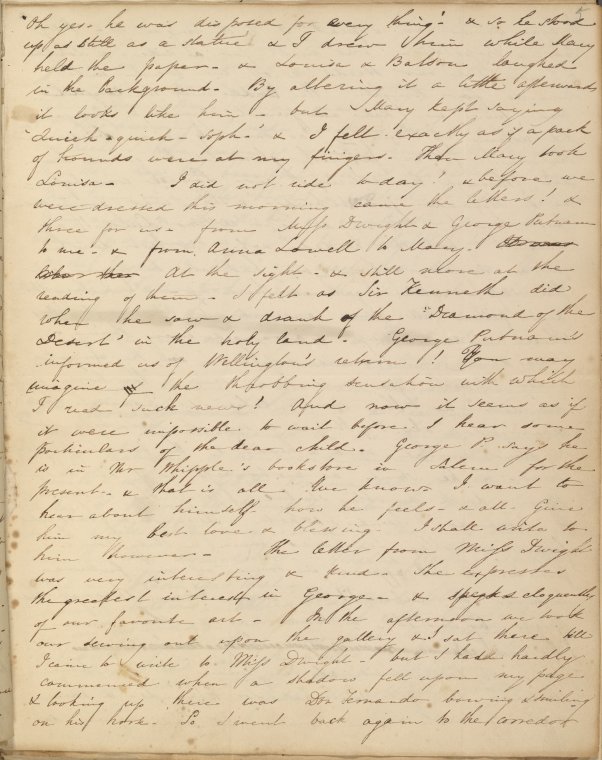 Oh yes - he was disposed for every thing! & so he stood
up as still as a statue & I drew him while Mary
held the paper - & Louisa & Batson laughed
in the background. By altering it a little afterwards
it looks like him - but Mary kept saying
"Quick - quick - Soph!" & I felt exactly as if a pack
of hounds were at my fingers. Then Mary took
Louisa - I did not ride to-day! & before we
were dressed this morning came the letters! &
three for us - from Miss Dwight & George Putnam
to me - & from Anna Lowell to Mary.
At the sight - & still more at the
reading of them - I felt as Sir Kenneth did
when he saw & drank of the "Diamond of the
Desert" in the holy land - George Putnam
informed us of Wellington's return! You may
imagine the throbbing sensation with which
I read such news! And now it seems as if
it were impossible to wait before I hear some
particulars of the dear child. George P. says he
is in Mr Whipple's bookstore in Salem for the
present - & that is all we know. I want to
hear about himself how he feels - & all. Give
him my best love & blessing. I shall write to
him however - The letter from Miss Dwight
was very interesting & kind. She expresses
the greatest interest in George - & speaks eloquently
of our favorite art - In the afternoon we took
our sewing out upon the gallery & I sat there till
I came to write to Miss Dwight - but I had hardly
commenced when a shadow fell upon my page
& looking up there was Don Fernando bowing & smiling
on his horse. So I went back again to the corredor